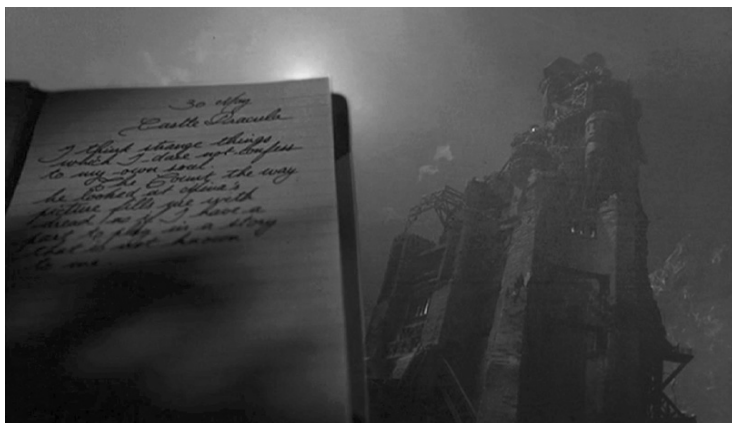 30 May
Castle Dracula
I think strange things
which I dare not confess
to my own soul
The Count the way
he looked at Mina's
picture fills me with
dread as if I have a
part to play in a story
that is not known
to me